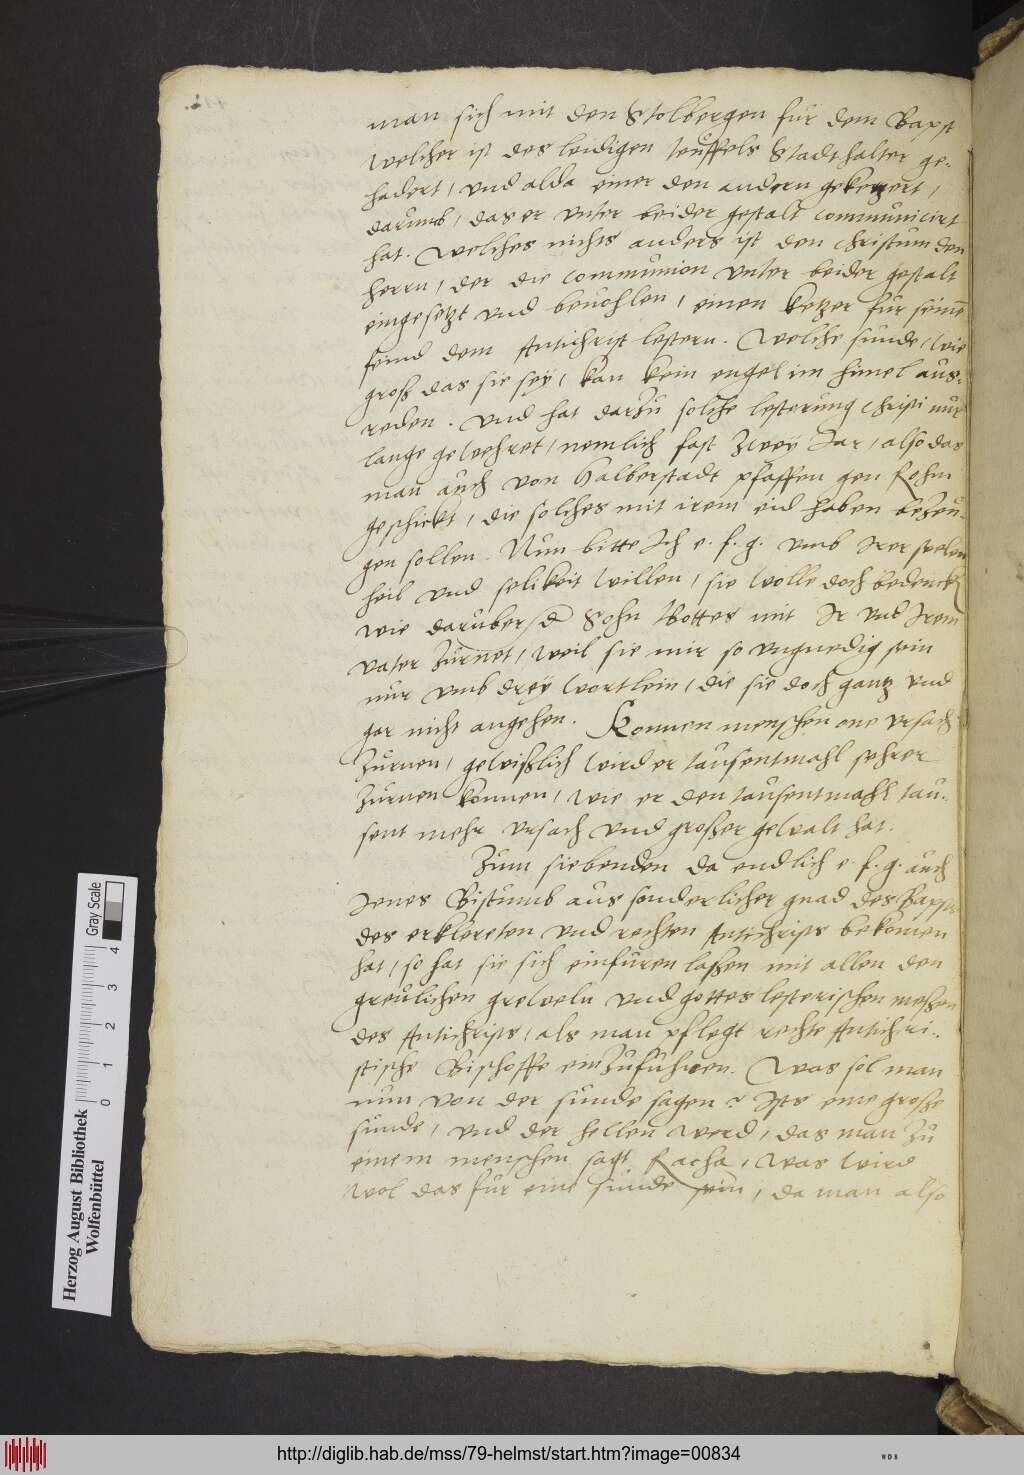 man sich mit den Stolbergen fur dem Bapst
welcher ist des leidigen teuffels Stadthalter ge-
hadert, und alda einer den andern geketzert,
darumb, das er unter beider gestalt communicirt
hat. Welches nichts anders ist den Christum den
herrn, der die communion unter beider gestalt
eingesetzt und bevohlen, einen ketzer fur seinē
feind dem Antichrist lestern. Welche sunde, wie
groß das sie sey, kan kein engel im himel aus-
reden. Und hat darzu solche lesterung Christi nur
lange gewehret, nemlich fast zwey Jar, also das
man auch von Halberstadt pfaffen gen Rohm
geschickt, die solches mit irem eid haben bezeu-
gen sollen. Nun bitte Ich e. f. g. umb Irer seelen
heil und selikeit willen, sie wolle doch bedenck
wie daruber d Sohn Gottes mit Ir und Irem
vater zurnet, weil sie mir so ungnedig sein
nur umb drey wortlein, die sie doch gantz und
gar nicht angehen. Konnen menschen one ursach
zurnen, gewißlich wird er tausentmahl sehrer
zurnen konnen, wie er den tausentmahl tau-
sent mehr ursach und großer gewalt hat.
Zum siebenden da endlich e. f. g. auch
Jenes Bistumb aus sonderlicher gnad des Bapsts
des erklereten und rechten Antichrists bekomen
hat, so hat sie sich einfuren laßen mit allen den
greulichen greweln und gotteslesterischen meßen
des Antichrists, als man pflegt rechte Antichri-
stische Bischoffe einzufuhren. Was sol man
nun von der sunde sagen? Ists eine große
sunde, und der hellen werd, das man zu
einem menschen sagt Racha, was wird
wol das fur eine sunde sein, da man also
Herzog August Bibliothek
Wolfenbüttel
0 1 2 3 4
Gray Scale
http://diglib.hab.de/mss/79-helmst/start.htm?image=00834
WDB